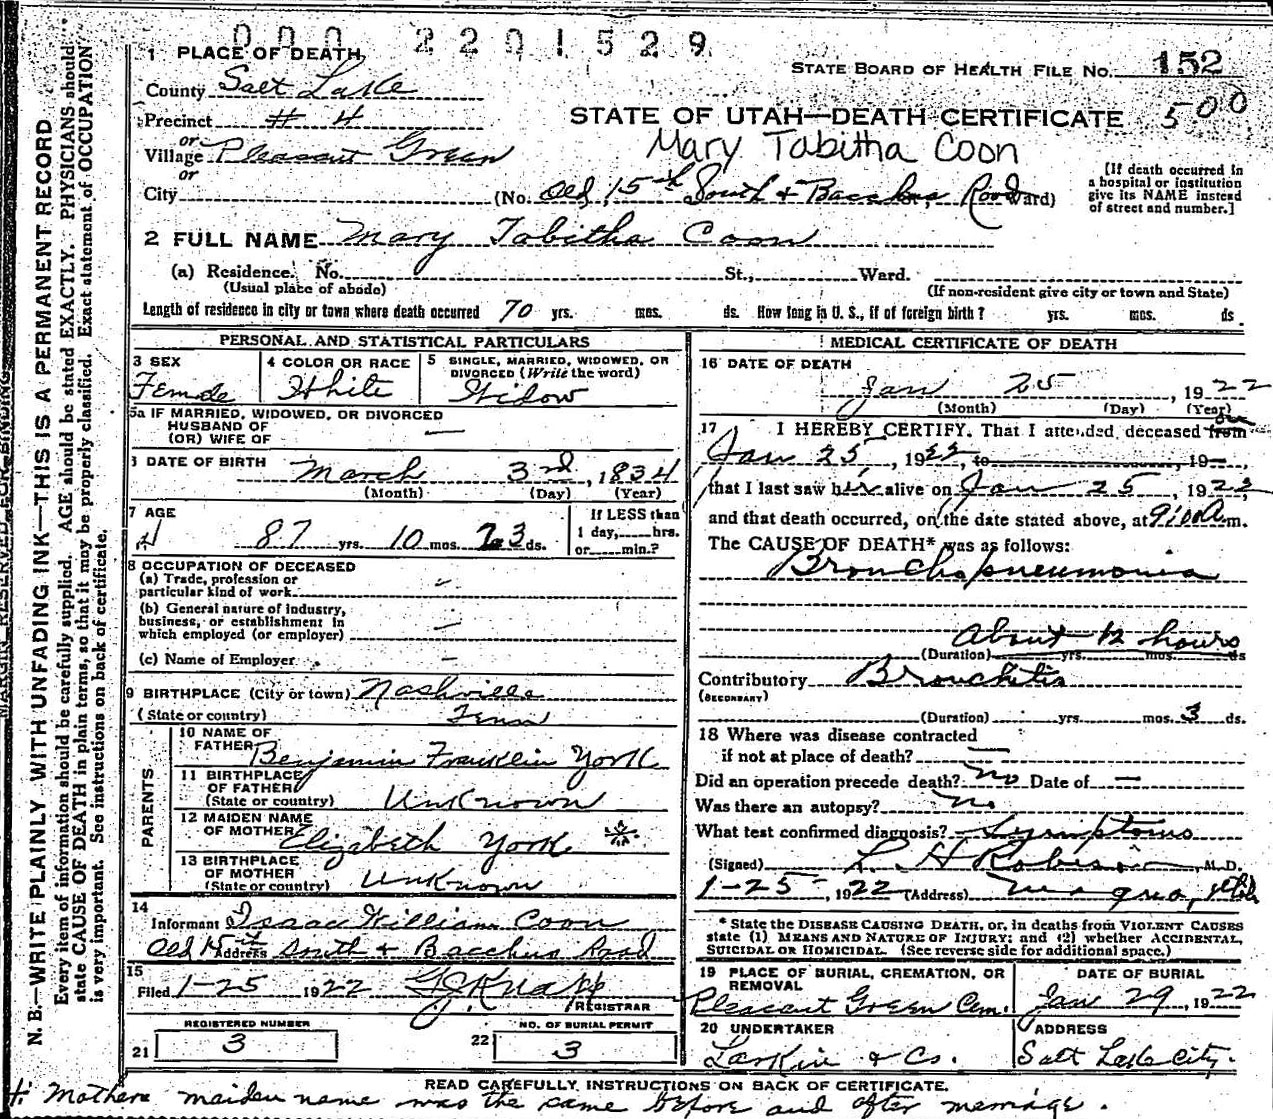 000 2201529
1 PLACE OF DEATH
STATE BOARD OF HEALTH FILE NO. 152
County Salt Lake
500
Precinct # 4
STATE OF UTAH—DEATH CERTIFICATE
or
Village Pleasant Green
Mary Tabitha Coon
or
City
(No. Old 15th South & Bacchus Road Ward)
[If death occurred in
a hospital or institution
give its NAME instead
of street and number.]
2 FULL NAME Mary Tabitha Coon
(a) Residence. No. St., Ward.
(Usual place of abode)
(If non-resident give city or town and State)
Length of residence in city or town where death occurred 70 yrs. mos. ds. How long in U. S., if of foreign birth? yrs. mos. ds.
PERSONAL AND STATISTICAL PARTICULARS
3 SEX
Female
4 COLOR OR RACE
White
5 SINGLE, MARRIED, WIDOWED, OR
DIVORCED (Write the word)
Widow
5a IF MARRIED, WIDOWED, OR DIVORCED
HUSBAND OF
(OR) WIFE OF —
DATE OF BIRTH March 3rd, 1834
(Month) (Day) (Year)
7 AGE
87 yrs. 10 mos. 23 ds.
If LESS than
1 day, hrs.
or min.?
8 OCCUPATION OF DECEASED
(a) Trade, profession or
particular kind of work —
(b) General nature of industry,
business, or establishment in
which employed (or employer) —
(c) Name of Employer —
9 BIRTHPLACE (City or town) Nashville
(State or country) Tenn
PARENTS
10 NAME OF
FATHER Benjamin Franklin York
11 BIRTHPLACE
OF FATHER
(State or country) Unknown
12 MAIDEN NAME
OF MOTHER Elizabeth York *
13 BIRTHPLACE
OF MOTHER
(State or country) Unknown
14
Informant Isaac William Coon
Address Old 15th South & Bacchus Road
15
Filed 1-25 1922 G. J. Knapp
REGISTRAR
REGISTERED NUMBER
21 3
NO. OF BURIAL PERMIT
22 3
MEDICAL CERTIFICATE OF DEATH
16 DATE OF DEATH
Jan 25, 1922
(Month) (Day) (Year)
17 I HEREBY CERTIFY, That I attended deceased from on
Jan 25, 1922, to , 19 ,
that I last saw her alive on Jan 25, 1922,
and that death occurred, on the date stated above, at 9:00 A.m.
The CAUSE OF DEATH* was as follows:
Bronchopneumonia
About 12 hours
(Duration) yrs. mos. ds
Contributory Bronchitis
(SECONDARY)
(Duration) yrs. mos. 3 ds.
18 Where was disease contracted
if not at place of death? —
Did an operation precede death? no Date of —
Was there an autopsy? no
What test confirmed diagnosis? Symptoms
(Signed) L. H. Robison, M.D.
1-25-, 1922 (Address) Magna, Utah
* State the DISEASE CAUSING DEATH, or, in deaths from VIOLENT CAUSES
state (1) MEANS AND NATURE OF INJURY; and (2) whether ACCIDENTAL,
SUICIDAL OR HOMICIDAL. (See reverse side for additional space.)
19 PLACE OF BURIAL, CREMATION, OR
REMOVAL
Pleasant Green Cem.
DATE OF BURIAL
Jan 29, 1922
20 UNDERTAKER
Larkin & Co.
ADDRESS
Salt Lake City.
READ CAREFULLY, INSTRUCTIONS ON BACK OF CERTIFICATE.
Mothers maiden name was the same before and after marriage.
MARGIN RESERVED FOR BINDING
N. B.—WRITE PLAINLY WITH UNFADING INK—THIS IS A PERMANENT RECORD
Every item of information should be carefully supplied. AGE should be stated EXACTLY. PHYSICIANS should
state CAUSE OF DEATH in plain terms, so that it may be properly classified. Exact statement of OCCUPATION
is very important. See instructions on back of certificate.